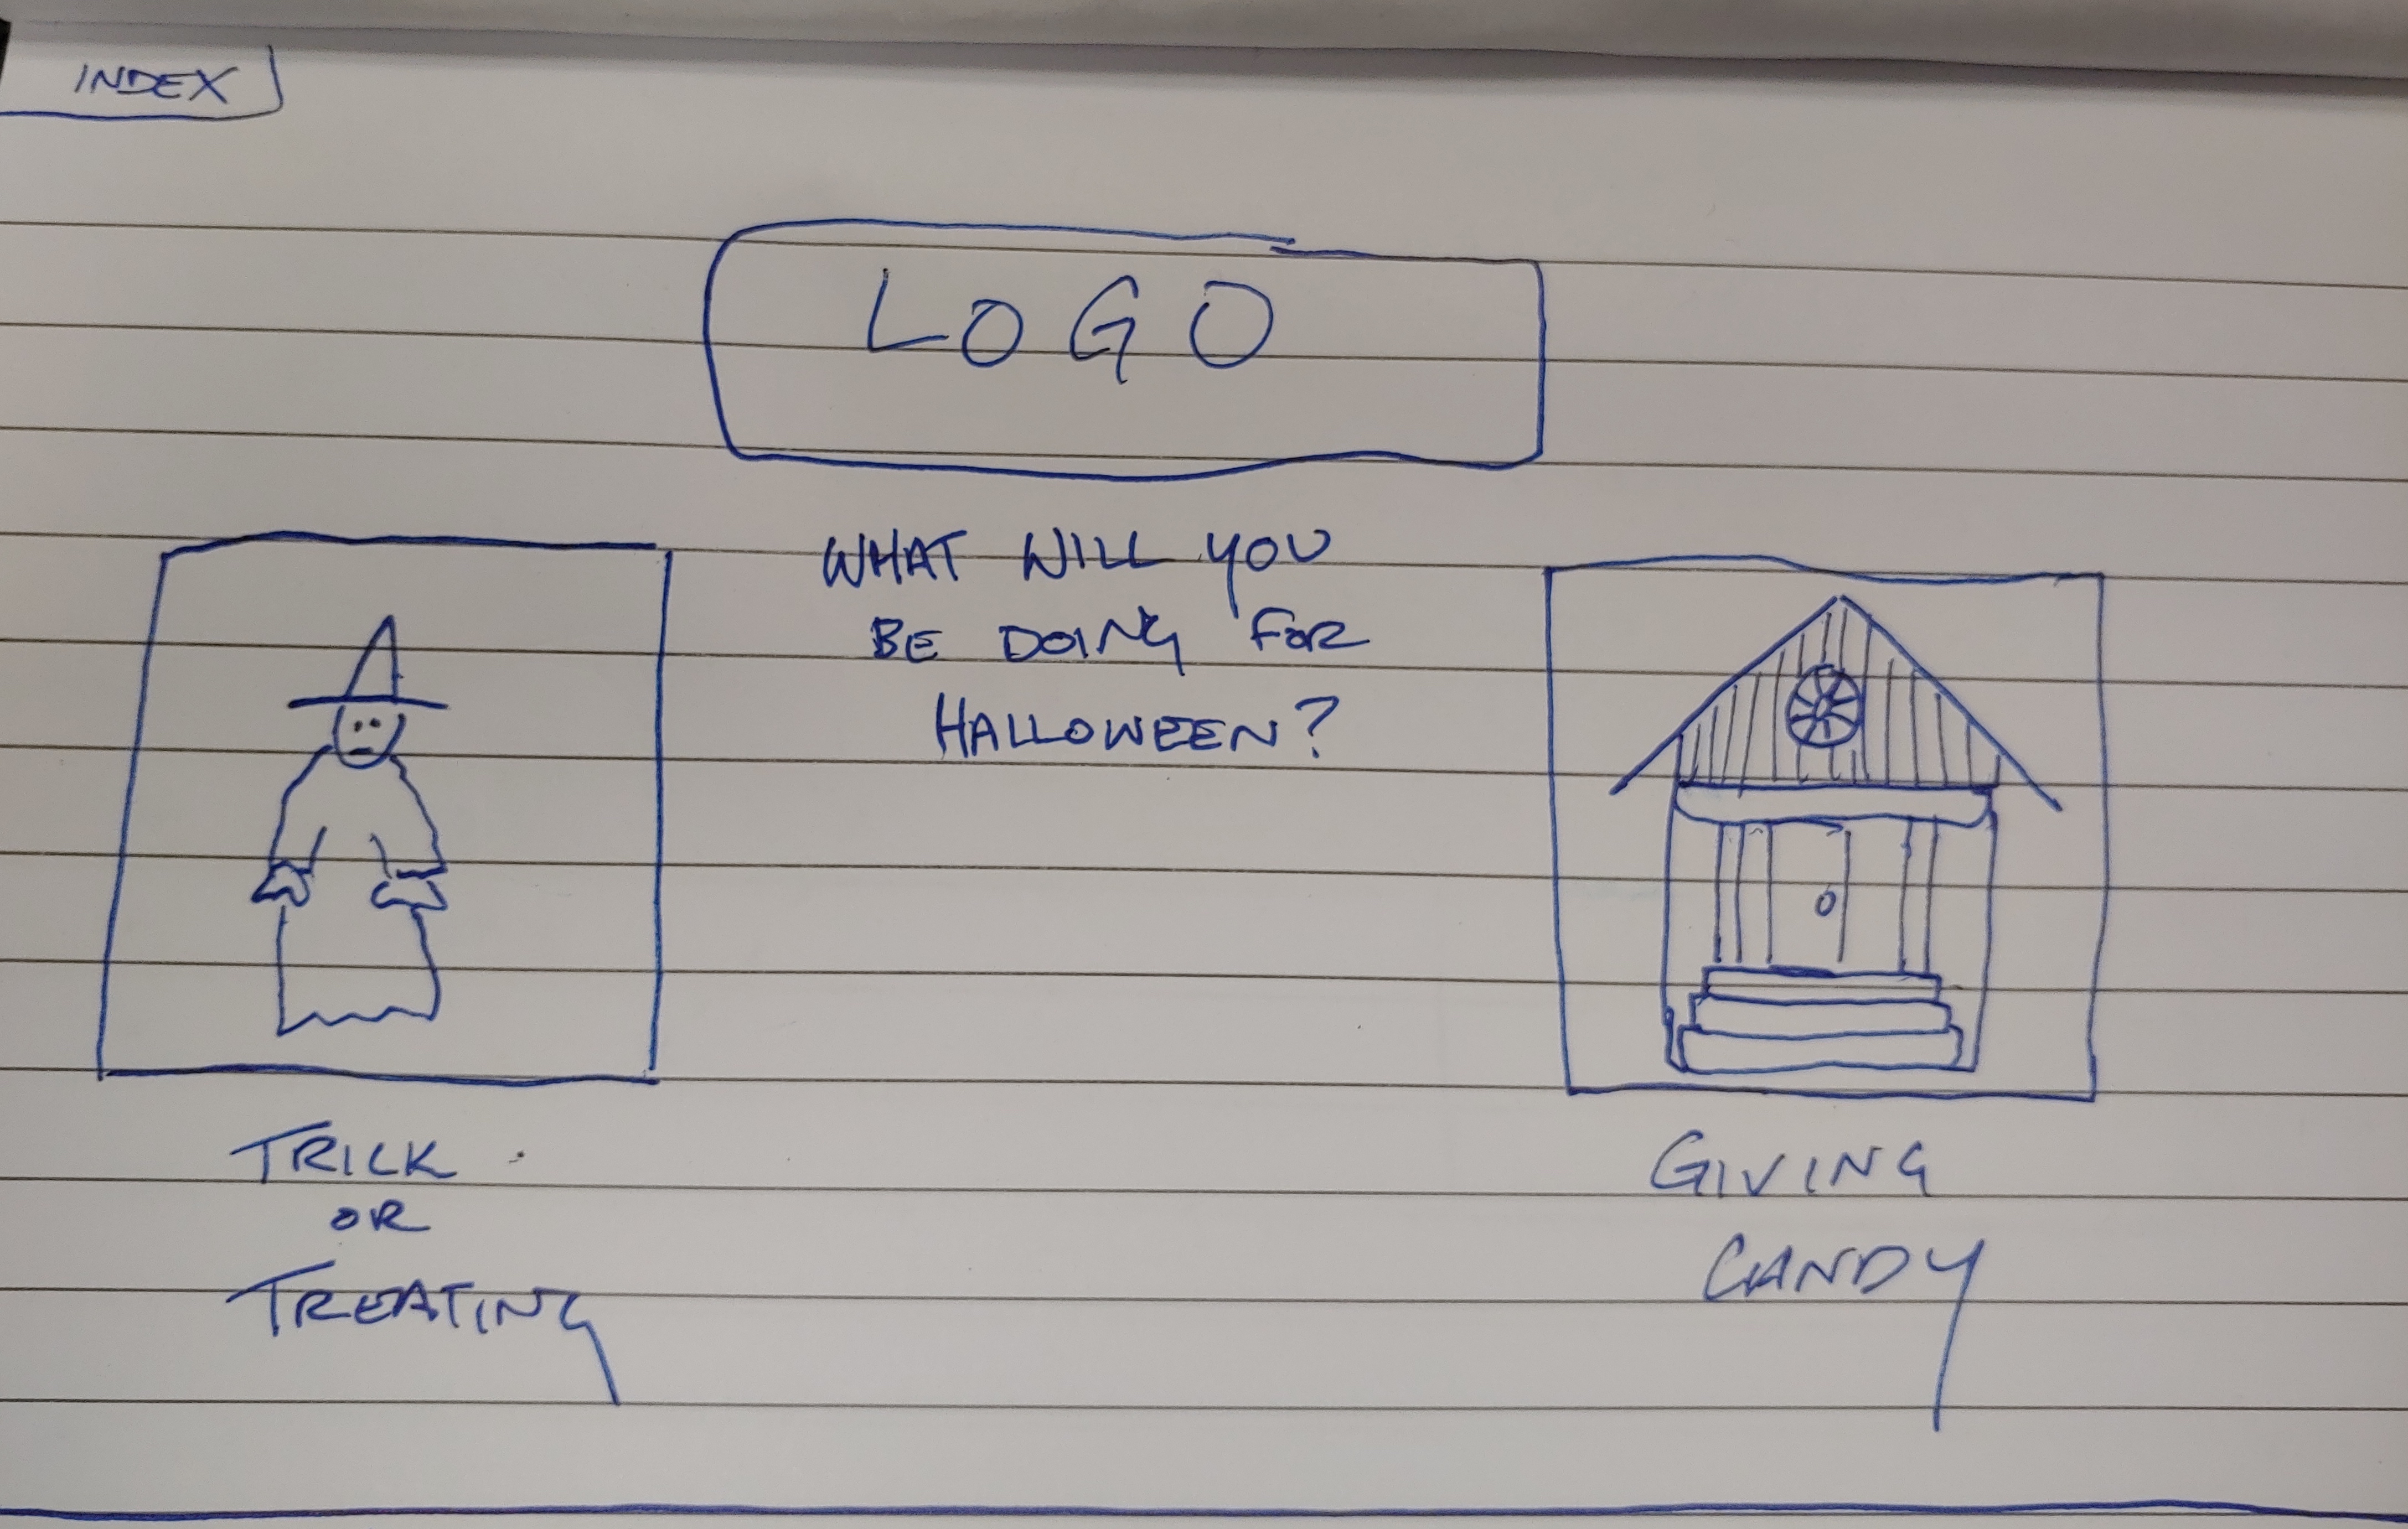 INDEX
LOGO
WHAT WILL YOU
BE DOING FOR
HALLOWEEN?
TRICK
OR
TREATING
GIVING
CANDY